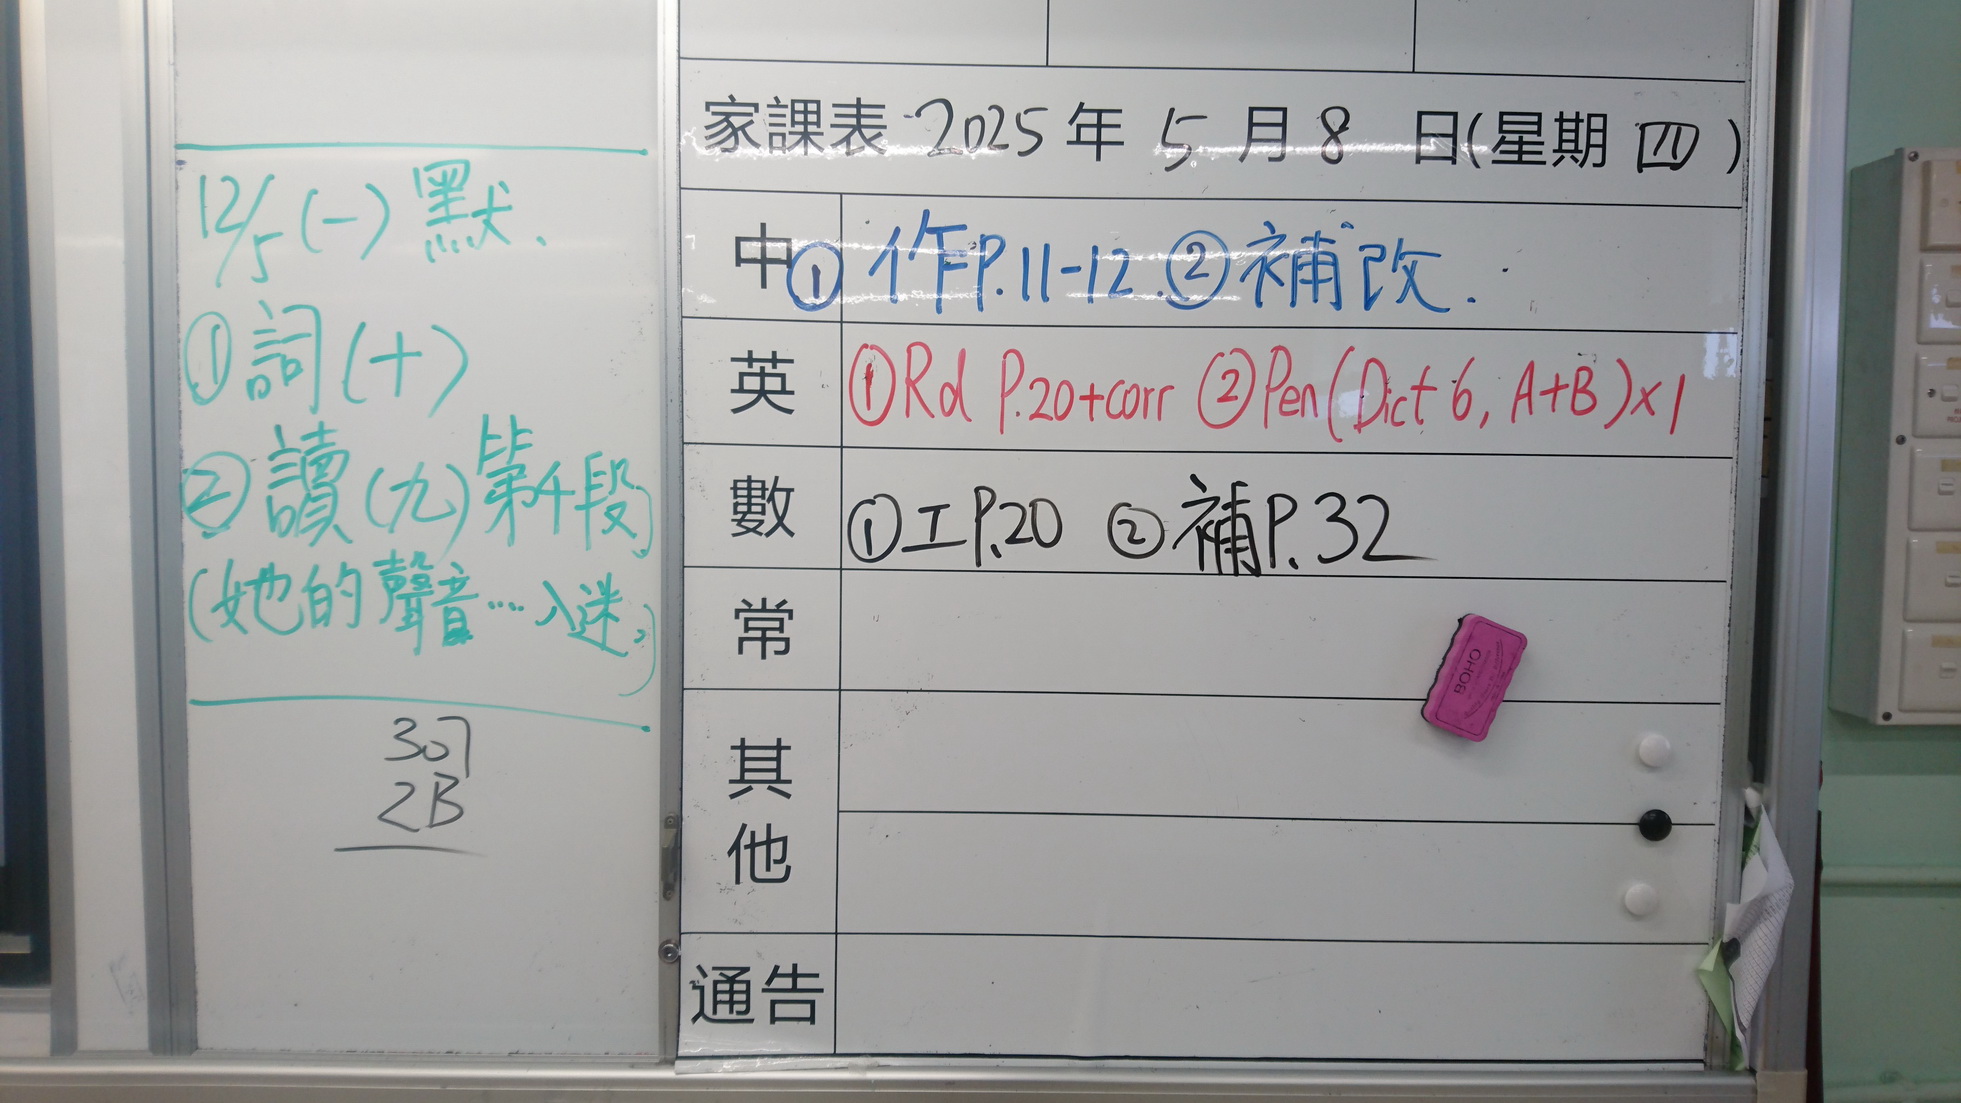 12/5 (一) 默、
① 詞 (十)
② 讀 (九) 第4段
(她的聲音…入迷。)
307
2B
家課表 2025 年 5 月 8 日(星期 四 )
中 ① 作P.11-12 ② 補改.
英 ① Rd P.20+corr ② Pen (Dict 6, A+B)×1
數 ① 工P.20 ② 補P.32
常
其他
通告
BOHO